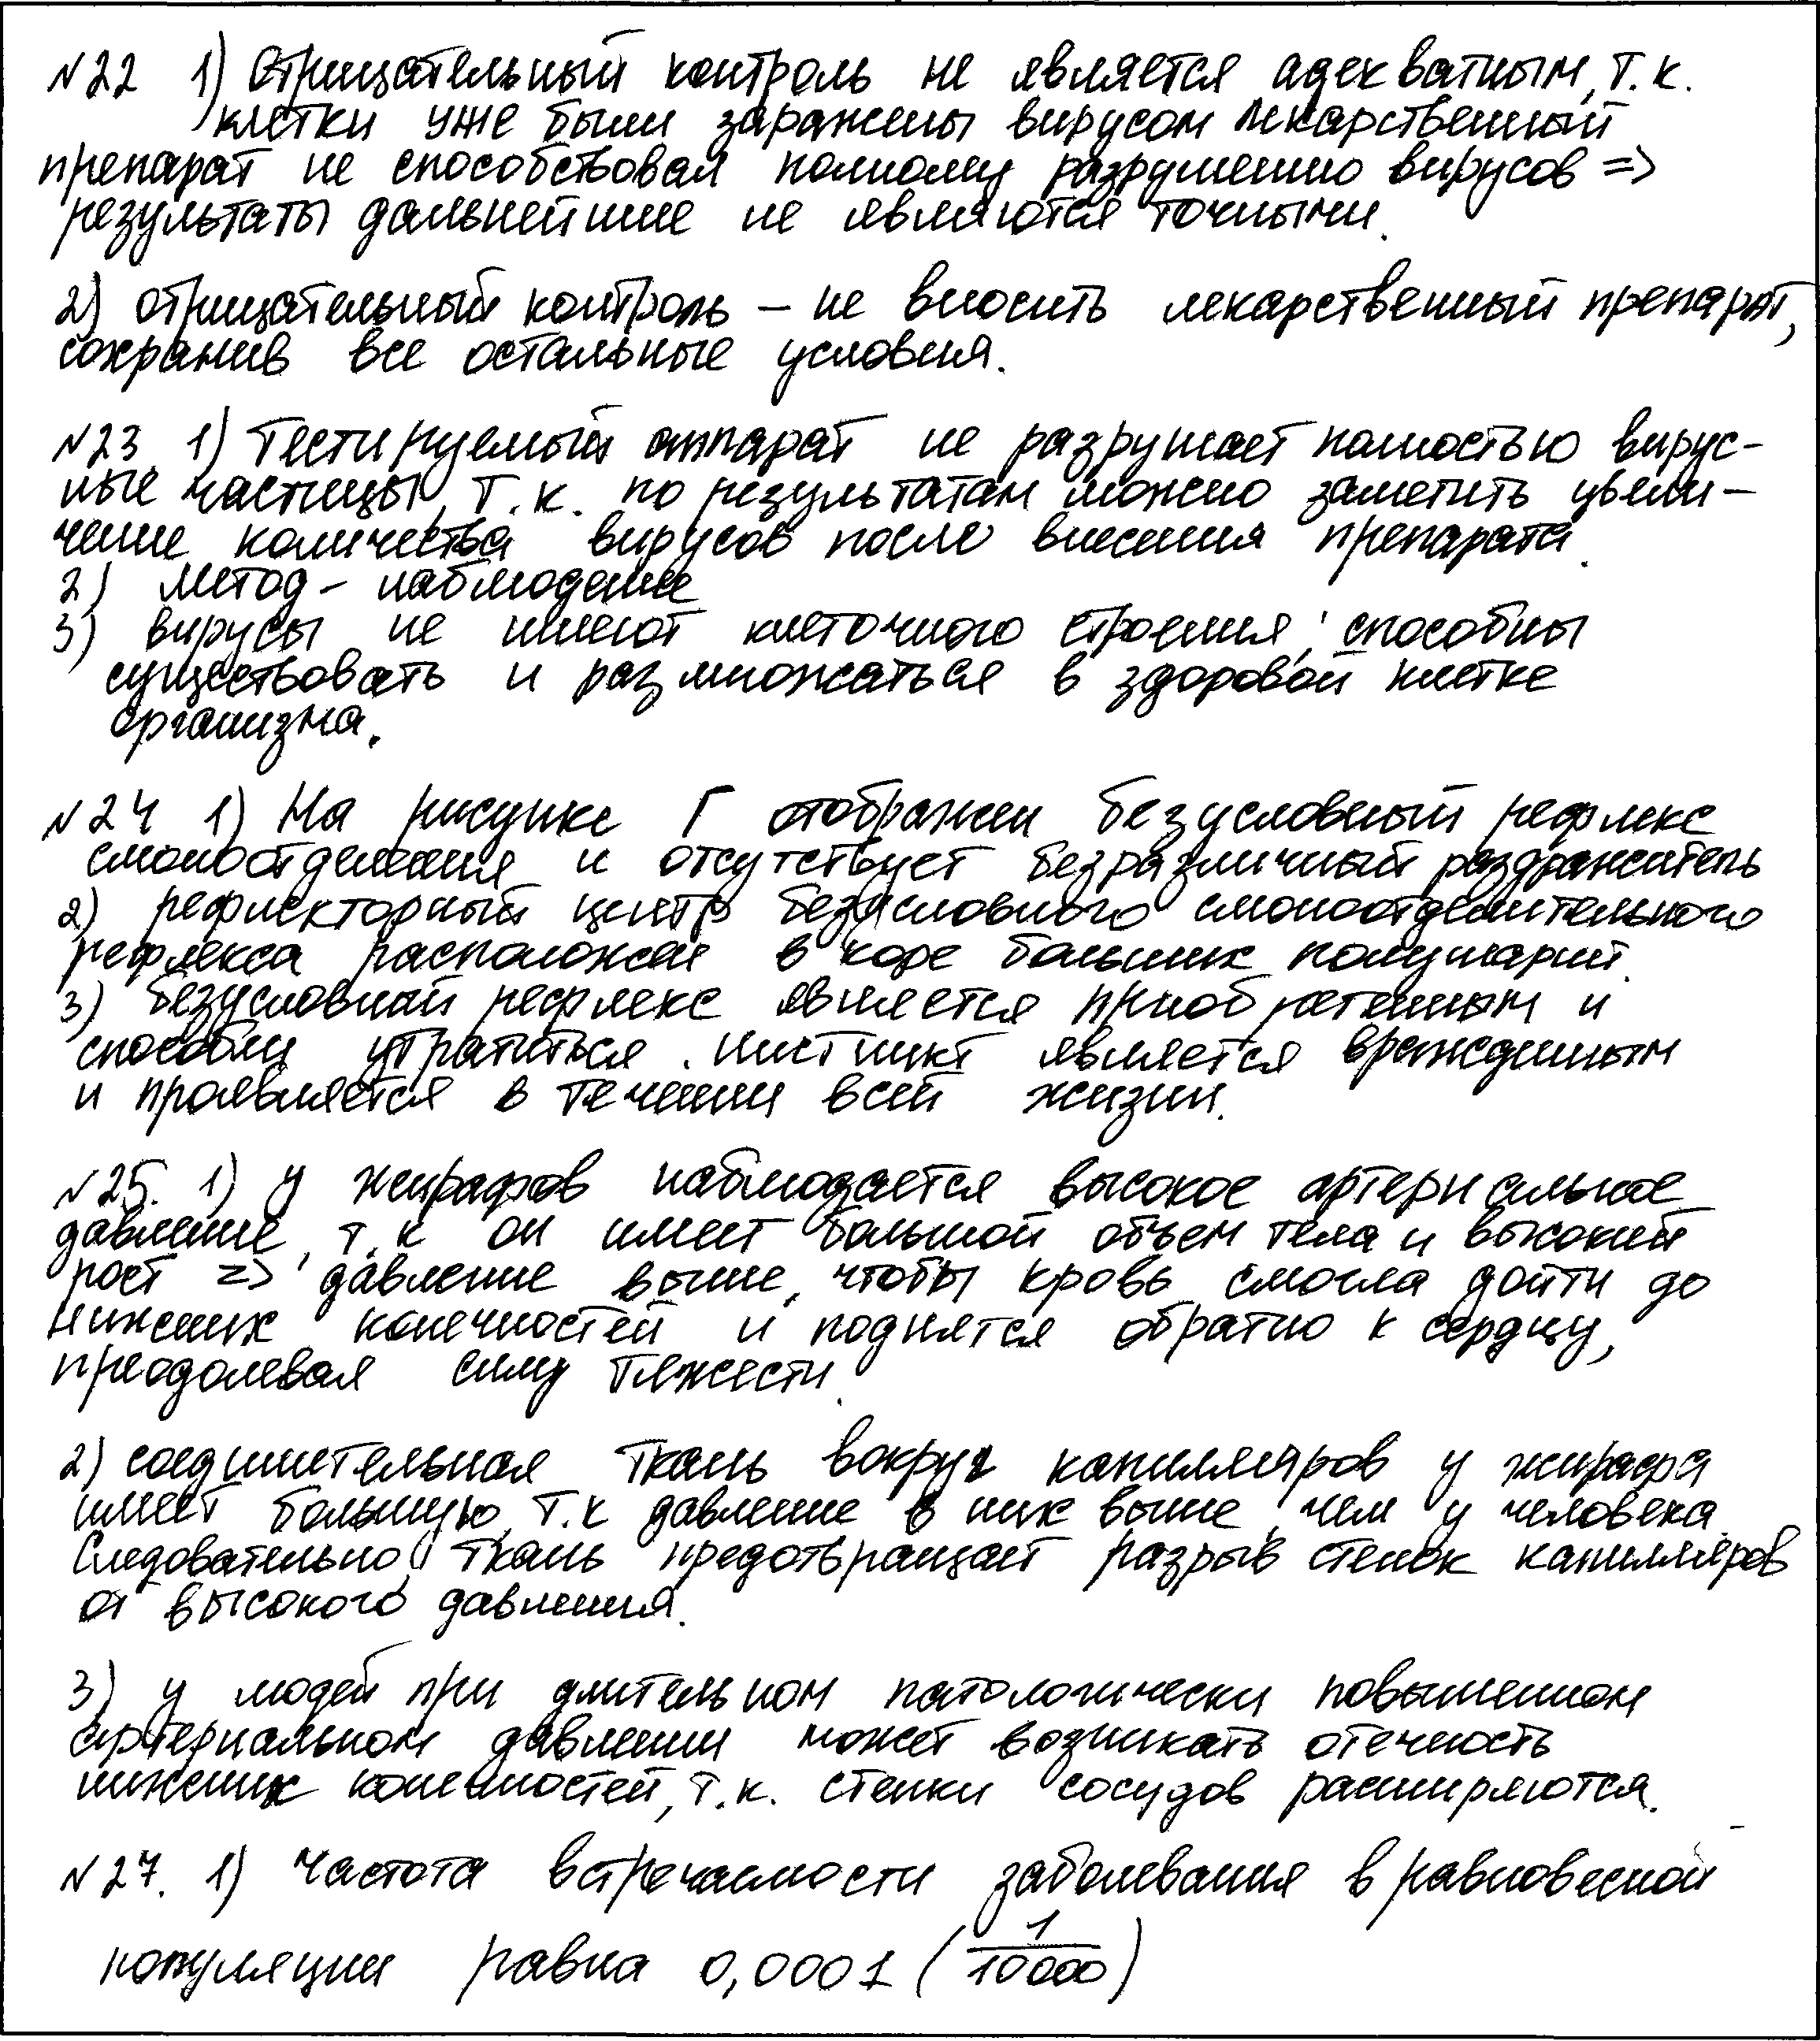 №22 1) Отрицательный контроль не является адекватным, т.к.
клетки уже были заражены вирусом лекарственный
препарат не способствовал полному разрушению вирусов =>
результаты дальнейшие не являются точными.
2) отрицательный контроль – не вносить лекарственный препарат,
сохранив все остальные условия.
№23 1) Тестируемый аппарат не разрушает полностью вирус-
ные частицы, т.к. по результатам можно заметить увели-
чение количества вирусов после внесения препарата.
2) метод – наблюдение
3) вирусы не имеют клеточного строения, способны
существовать и размножаться в здоровой клетке
организма.
№24 1) На рисунке Г отображен безусловный рефлекс
слюноотделения и отсутствует безразличный раздражитель
2) рефлекторный центр безусловного слюноотделительного
рефлекса расположен в коре больших полушарий.
3) безусловный рефлекс является приобретенным и
способен утратиться. инстинкт является врожденным
и проявляется в течении всей жизни.
№25. 1) у жирафов наблюдается высокое артериальное
давление, т.к он имеет большой объем тела и высокий
рост => давление выше, чтобы кровь смогла дойти до
нижних конечностей и поднятся обратно к сердцу,
преодолевая силу тяжести.
2) соединительная ткань вокруг капилляров у жирафа
имеет большую, т.к давление в них выше, чем у человека.
Следовательно, ткань предотвращает разрыв стенок капилляров
от высокого давления.
3) у людей при длительном патологически повышенном
артериальном давлении может возникать отечность
нижених конечностей, т.к. стенки сосудов расширяются.
№27. 1) Частота встречаемости заболевания в равновесной
популяции равна 0,0001 (1/10000)